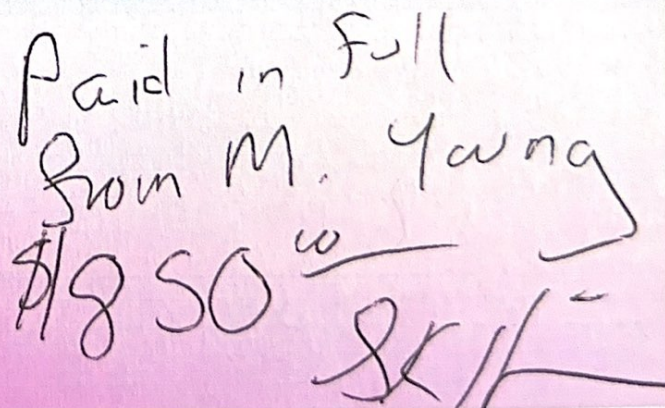 Paid in Full
from M. Young
$1850 00